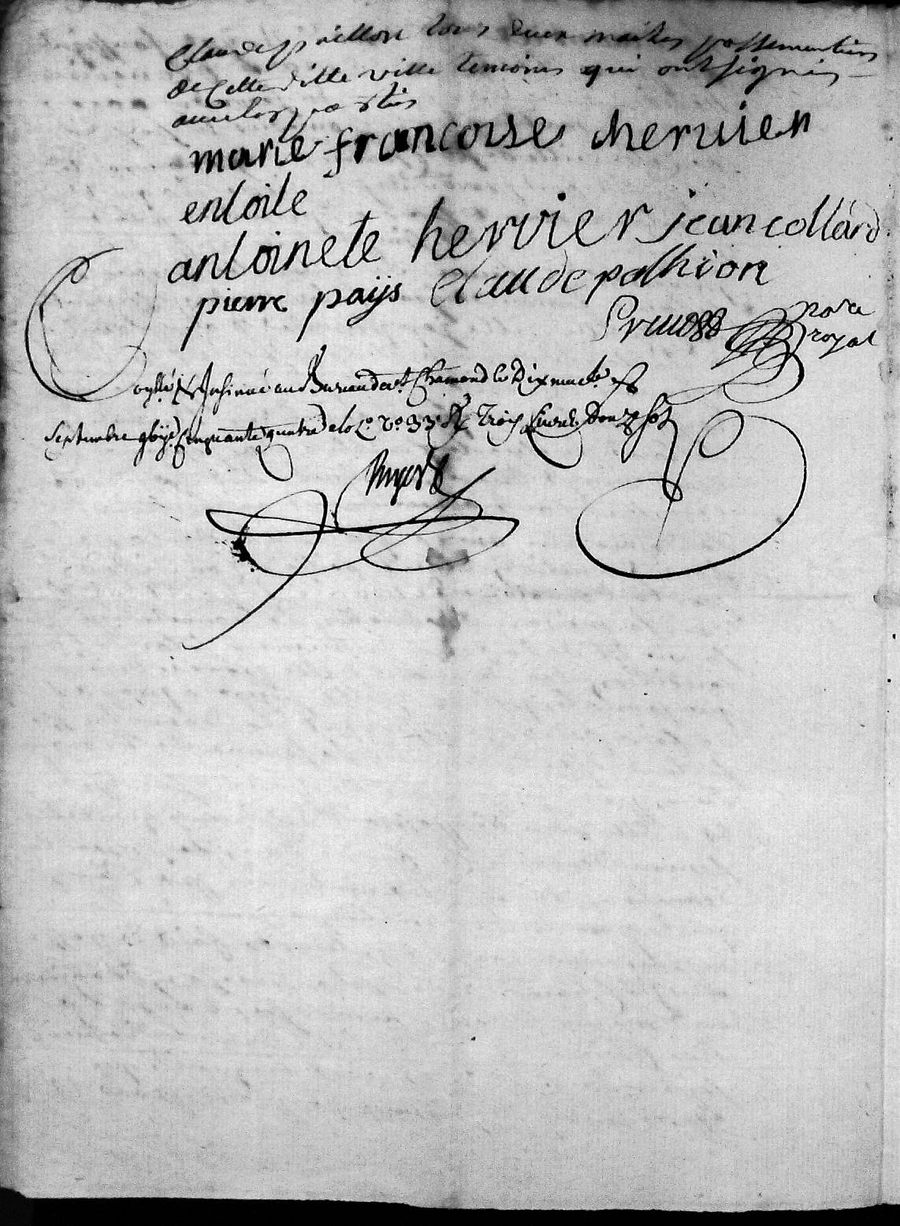 Claude paillon tous deux maitres passementiers
de Cette ditte ville temoins qui ont signés
avec les parties
marie francoise hervier
entoile
antoinete hervier jean collard
pierre paÿs claude palhion
nore
royal
Conllé & Insinué au Bureau de St. Chamond le Dix neufe
Septembre gbije Cinquante quatre Trois livres Douze sols